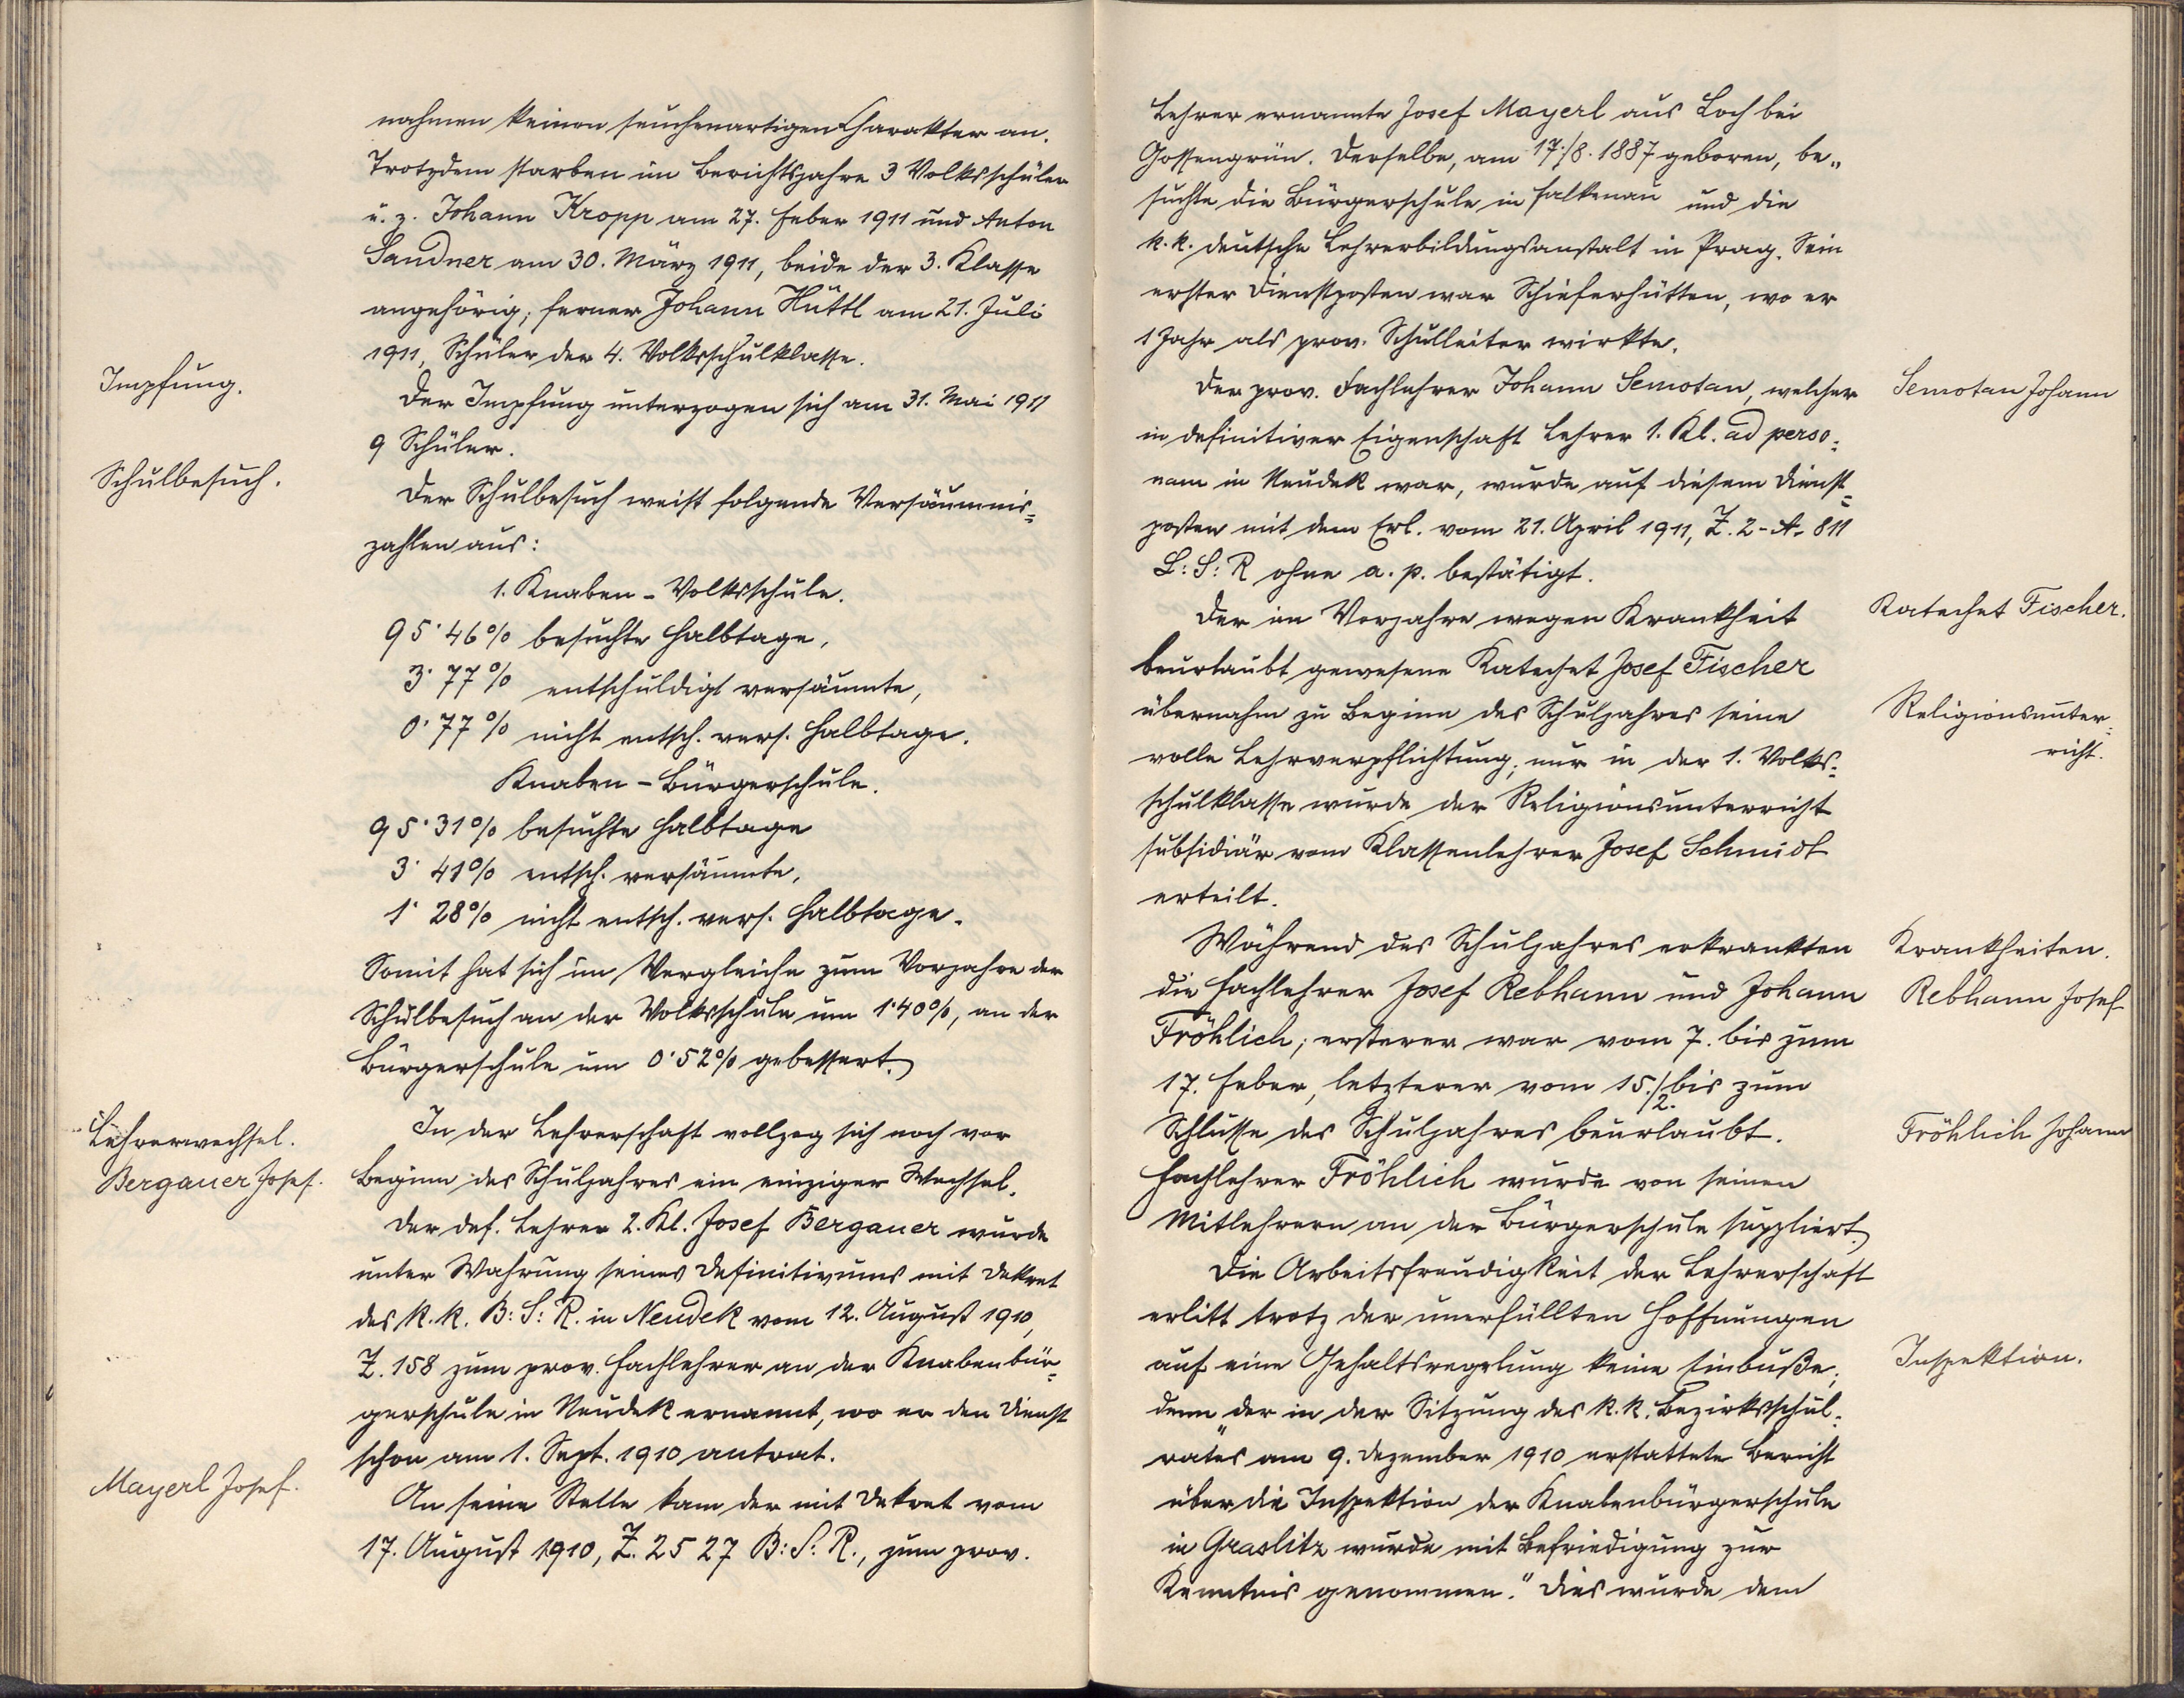 nahmen keinen seuchenartigen Charakter an.
Trotzdem starben im Berichtsjahre 3 Volksschüler
u. z. Johann Kropp am 27. Feber 1911 und Anton
Sandner am 30. März 1911, beide der 3. Klasse
angehörig; ferner Johann Hüttl am 21. Juli
1911, Schüler der 4. Volksschulklasse.
Impfung.
Der Impfung unterzogen sich am 31. Mai 1911
9 Schüler.
Schulbesuch.
Der Schulbesuch weist folgende Versäumnis=
zahlen aus:
1. Knaben-Volksschule.
95·46% besuchte Halbtage,
3·77% entschuldigt versäumte,
0·77% nicht entsch. vers. Halbtage.
Knaben-Bürgerschule.
95·31% besuchte Halbtage
3·41% entsch. versäumte,
1·28% nicht entsch. vers. Halbtage.
Somit hat sich im Vergleiche zum Vorjahre der
Schulbesuch an der Volksschule um 1·40%, an der
Bürgerschule um 0·52% gebessert.
Lehrerwechsel.
In der Lehrerschaft vollzog sich noch vor
Bergauer Josef.
Beginn des Schuljahres ein einziger Wechsel.
Der def. Lehrer 2. Kl. Josef Bergauer wurde
unter Wahrung seines Definitivums mit Dekret
des k. k. B: S: R. in Neudek vom 12. August 1910,
Z. 158 zum prov. Fachlehrer an der Knabenbür=
gerschule in Neudek ernannt, wo er den Dienst
schon am 1. Sept. 1910 antrat.
Mayerl Josef.
An seine Stelle kam der mit Dekret vom
17. August 1910, Z. 2527 B: S: R., zum prov.
Lehrer ernannte Josef Mayerl aus Loch bei
Gossengrün. Derselbe, am 17./8. 1887 geboren, be„
suchte die Bürgerschule in Falkenau und die
k. k. deutsche Lehrerbildungsanstalt in Prag. Sein
erster Dienstposten war Schieferhütten, wo er
1 Jahr als prov. Schulleiter wirkte.
Der prov. Fachlehrer Johann Semotan, welcher
Semotan Johann
in definitiver Eigenschaft Lehrer 1. Kl. ad perso=
nam in Neudek war, wurde auf diesem Dienst=
posten mit dem Erl. vom 21. April 1911, Z. 2-A-811
L: S: R ohne a. p. bestätigt.
Der im Vorjahre wegen Krankheit
Katechet Fischer.
beurlaubt gewesene Katechet Josef Fischer
übernahm zu Beginn des Schuljahres seine
Religionsunter=
richt.
volle Lehrverpflichtung; nur in der 1. Volks=
schulklasse wurde der Religionsunterricht
subsidiär vom Klassenlehrer Josef Schmidt
erteilt.
Während des Schuljahres erkrankten
Krankheiten.
die Fachlehrer Josef Rebhann und Johann
Rebhann Josef
Fröhlich; ersterer war vom 7. bis zum
17. Feber, letzterer vom 15./2. bis zum
Schlusse des Schuljahres beurlaubt.
Fröhlich Johann
Fachlehrer Fröhlich wurde von seinen
Mitlehrern an der Bürgerschule suppliert.
Die Arbeitsfreudigkeit der Lehrerschaft
erlitt trotz der unerfüllten Hoffnungen
auf eine Gehaltsregelung keine Einbuße;
Inspektion.
denn „der in der Sitzung des k. k. Bezirksschul=
rates am 9. Dezember 1910 erstattete Bericht
über die Inspektion der Knabenbürgerschule
in Graslitz wurde mit Befriedigung zur
Kenntnis genommen." Dies wurde dem